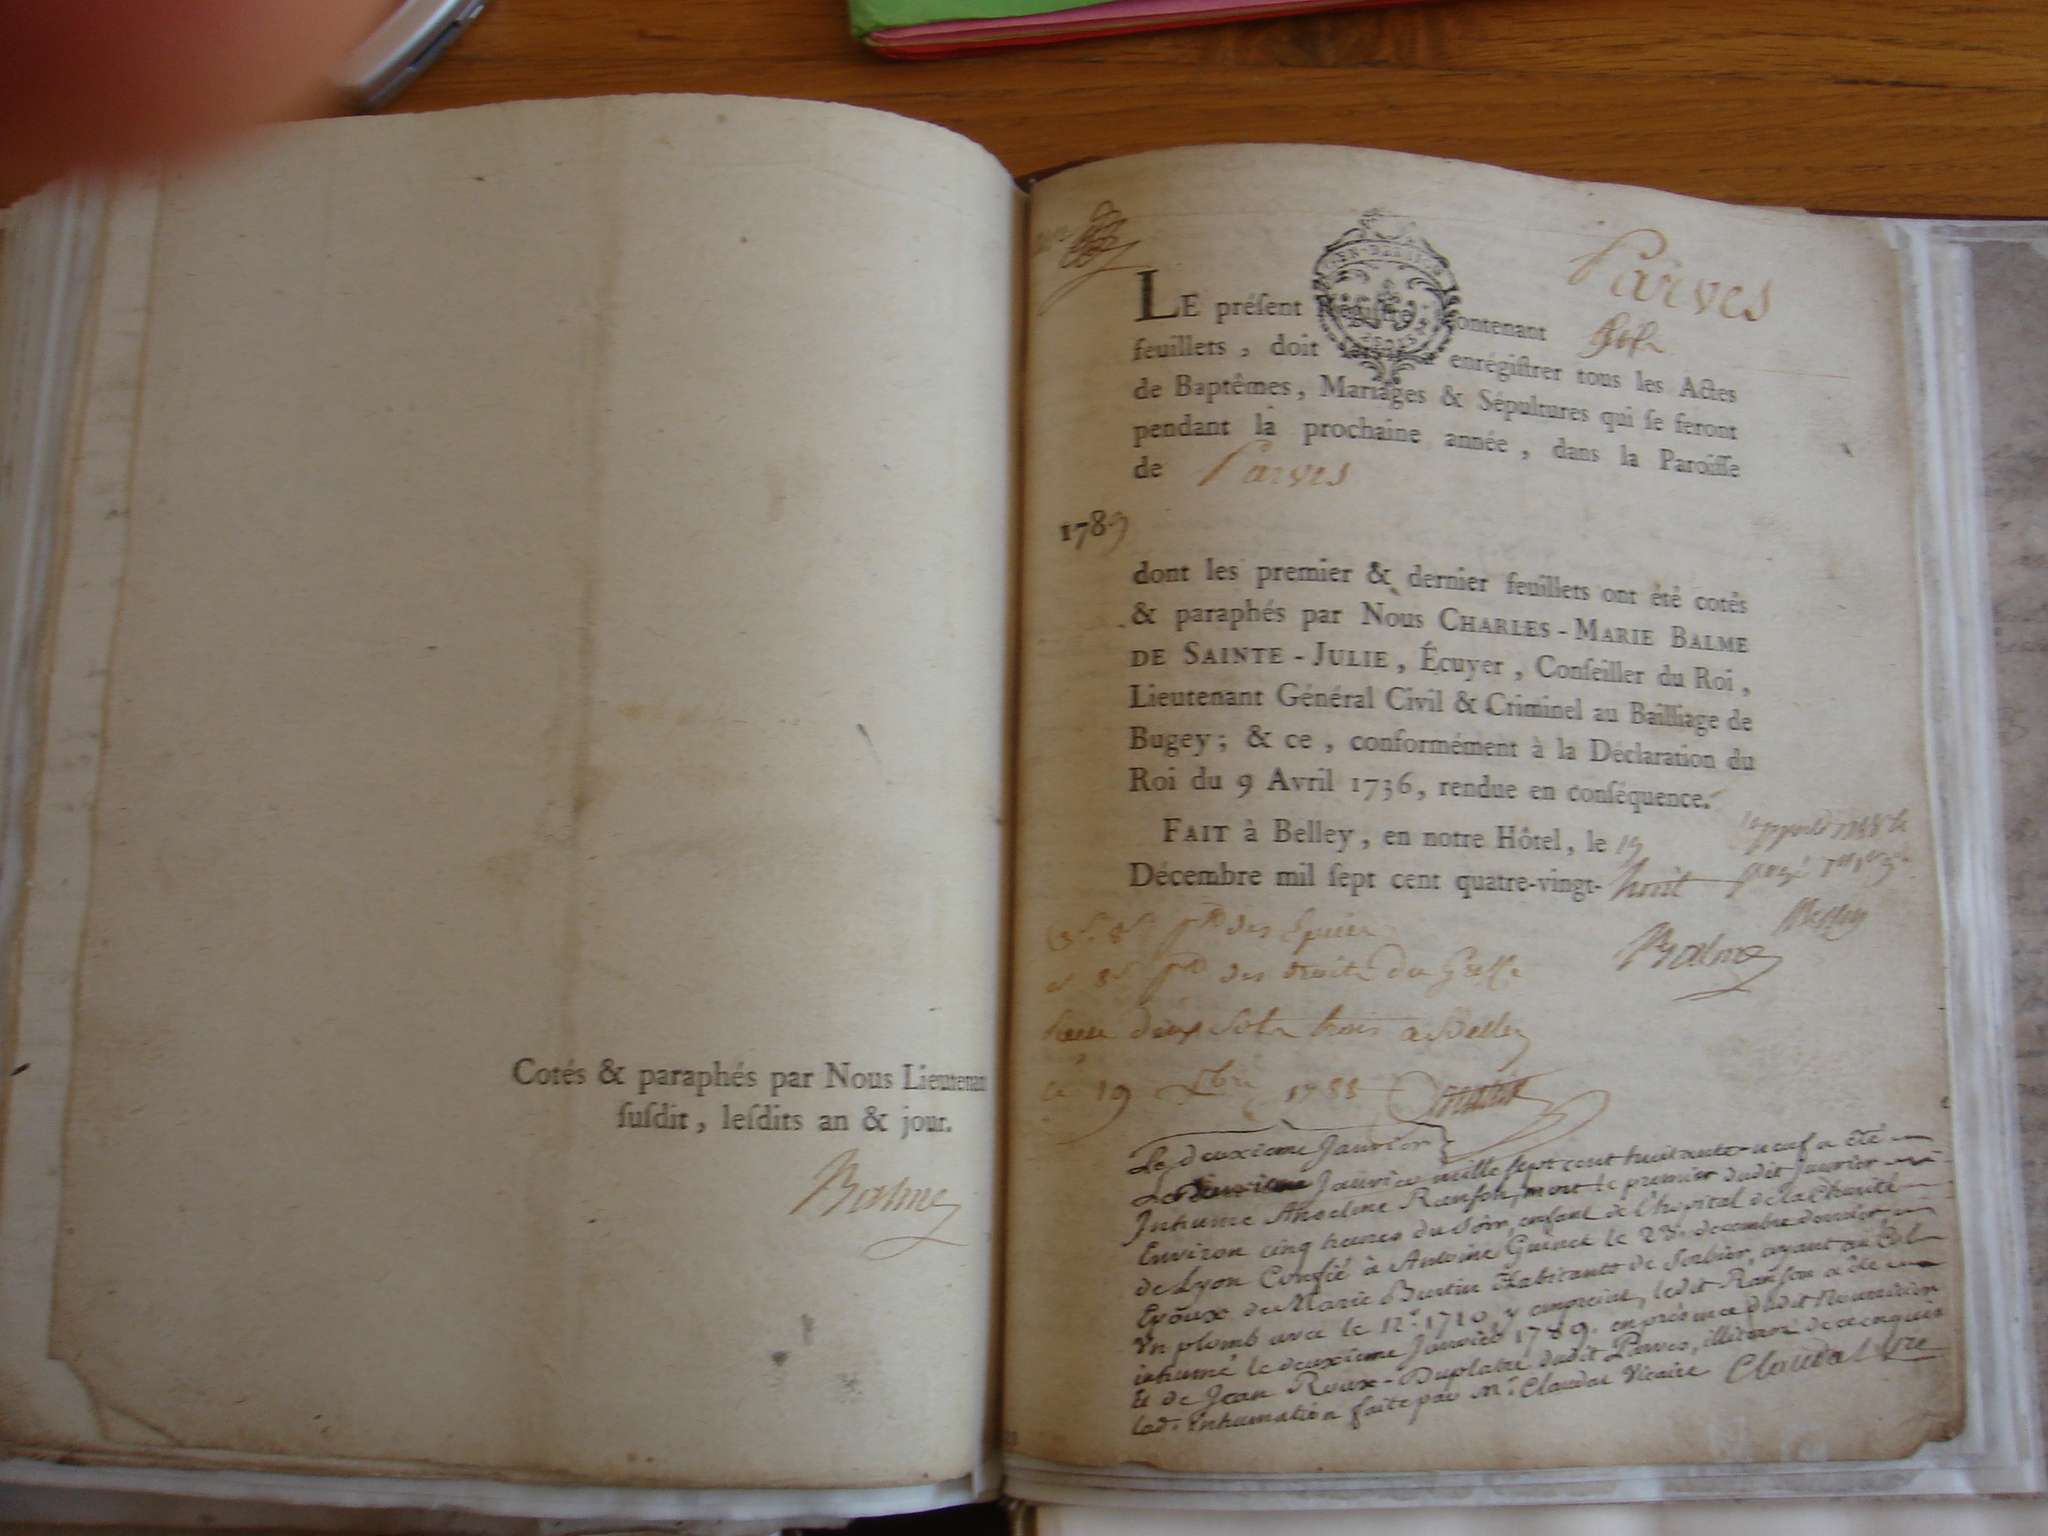 Cotés & paraphés par Nous Lieutenan
ſuſdit, leſdits an & jour.
Balme
Parves
LE préſent Regiſtre, contenant
feuillets, doit enrégiſtrer tous les Actes
de Baptêmes, Mariages & Sépultures qui ſe feront
pendant la prochaine année, dans la Paroiſſe
de Parves
1789
dont les premier & dernier feuillets ont été cotés
& paraphés par Nous CHARLES-MARIE BALME
DE SAINTE-JULIE, Écuyer, Conſeiller du Roi,
Lieutenant Général Civil & Criminel au Bailliage de
Bugey; & ce, conformément à la Déclaration du
Roi du 9 Avril 1736, rendue en conſéquence.
FAIT à Belley, en notre Hôtel, le 19
Décembre mil ſept cent quatre-vingt-huit
Balme
des droits du Greffe
deux sols trois a Belley
ce 19 Xbre 1788
Le deuxieme Janvier
Janvier mille sept cent huitante neuf a été
Inhumé Anselme Ranson, mort le premier dudit Janvier
Environ cinq heures du soir, enfant de l'hopital de la Charité
de Lyon Confié à Antoine Guinet le 28. decembre dernier,
Epoux de Marie Burtin habitants de Sorbier, ayant au Col
Un plomb avec le n.° 1710 y empreint, ledit Ranson a été
inhumé le deuxieme Janvier 1789. en présence dudit Nourricier
Et de Jean Roux-Duplatre dudit Parves, illiterés de ce enquis
lad. Inhumation faite par M.r Claudat Vicaire Claudat vre